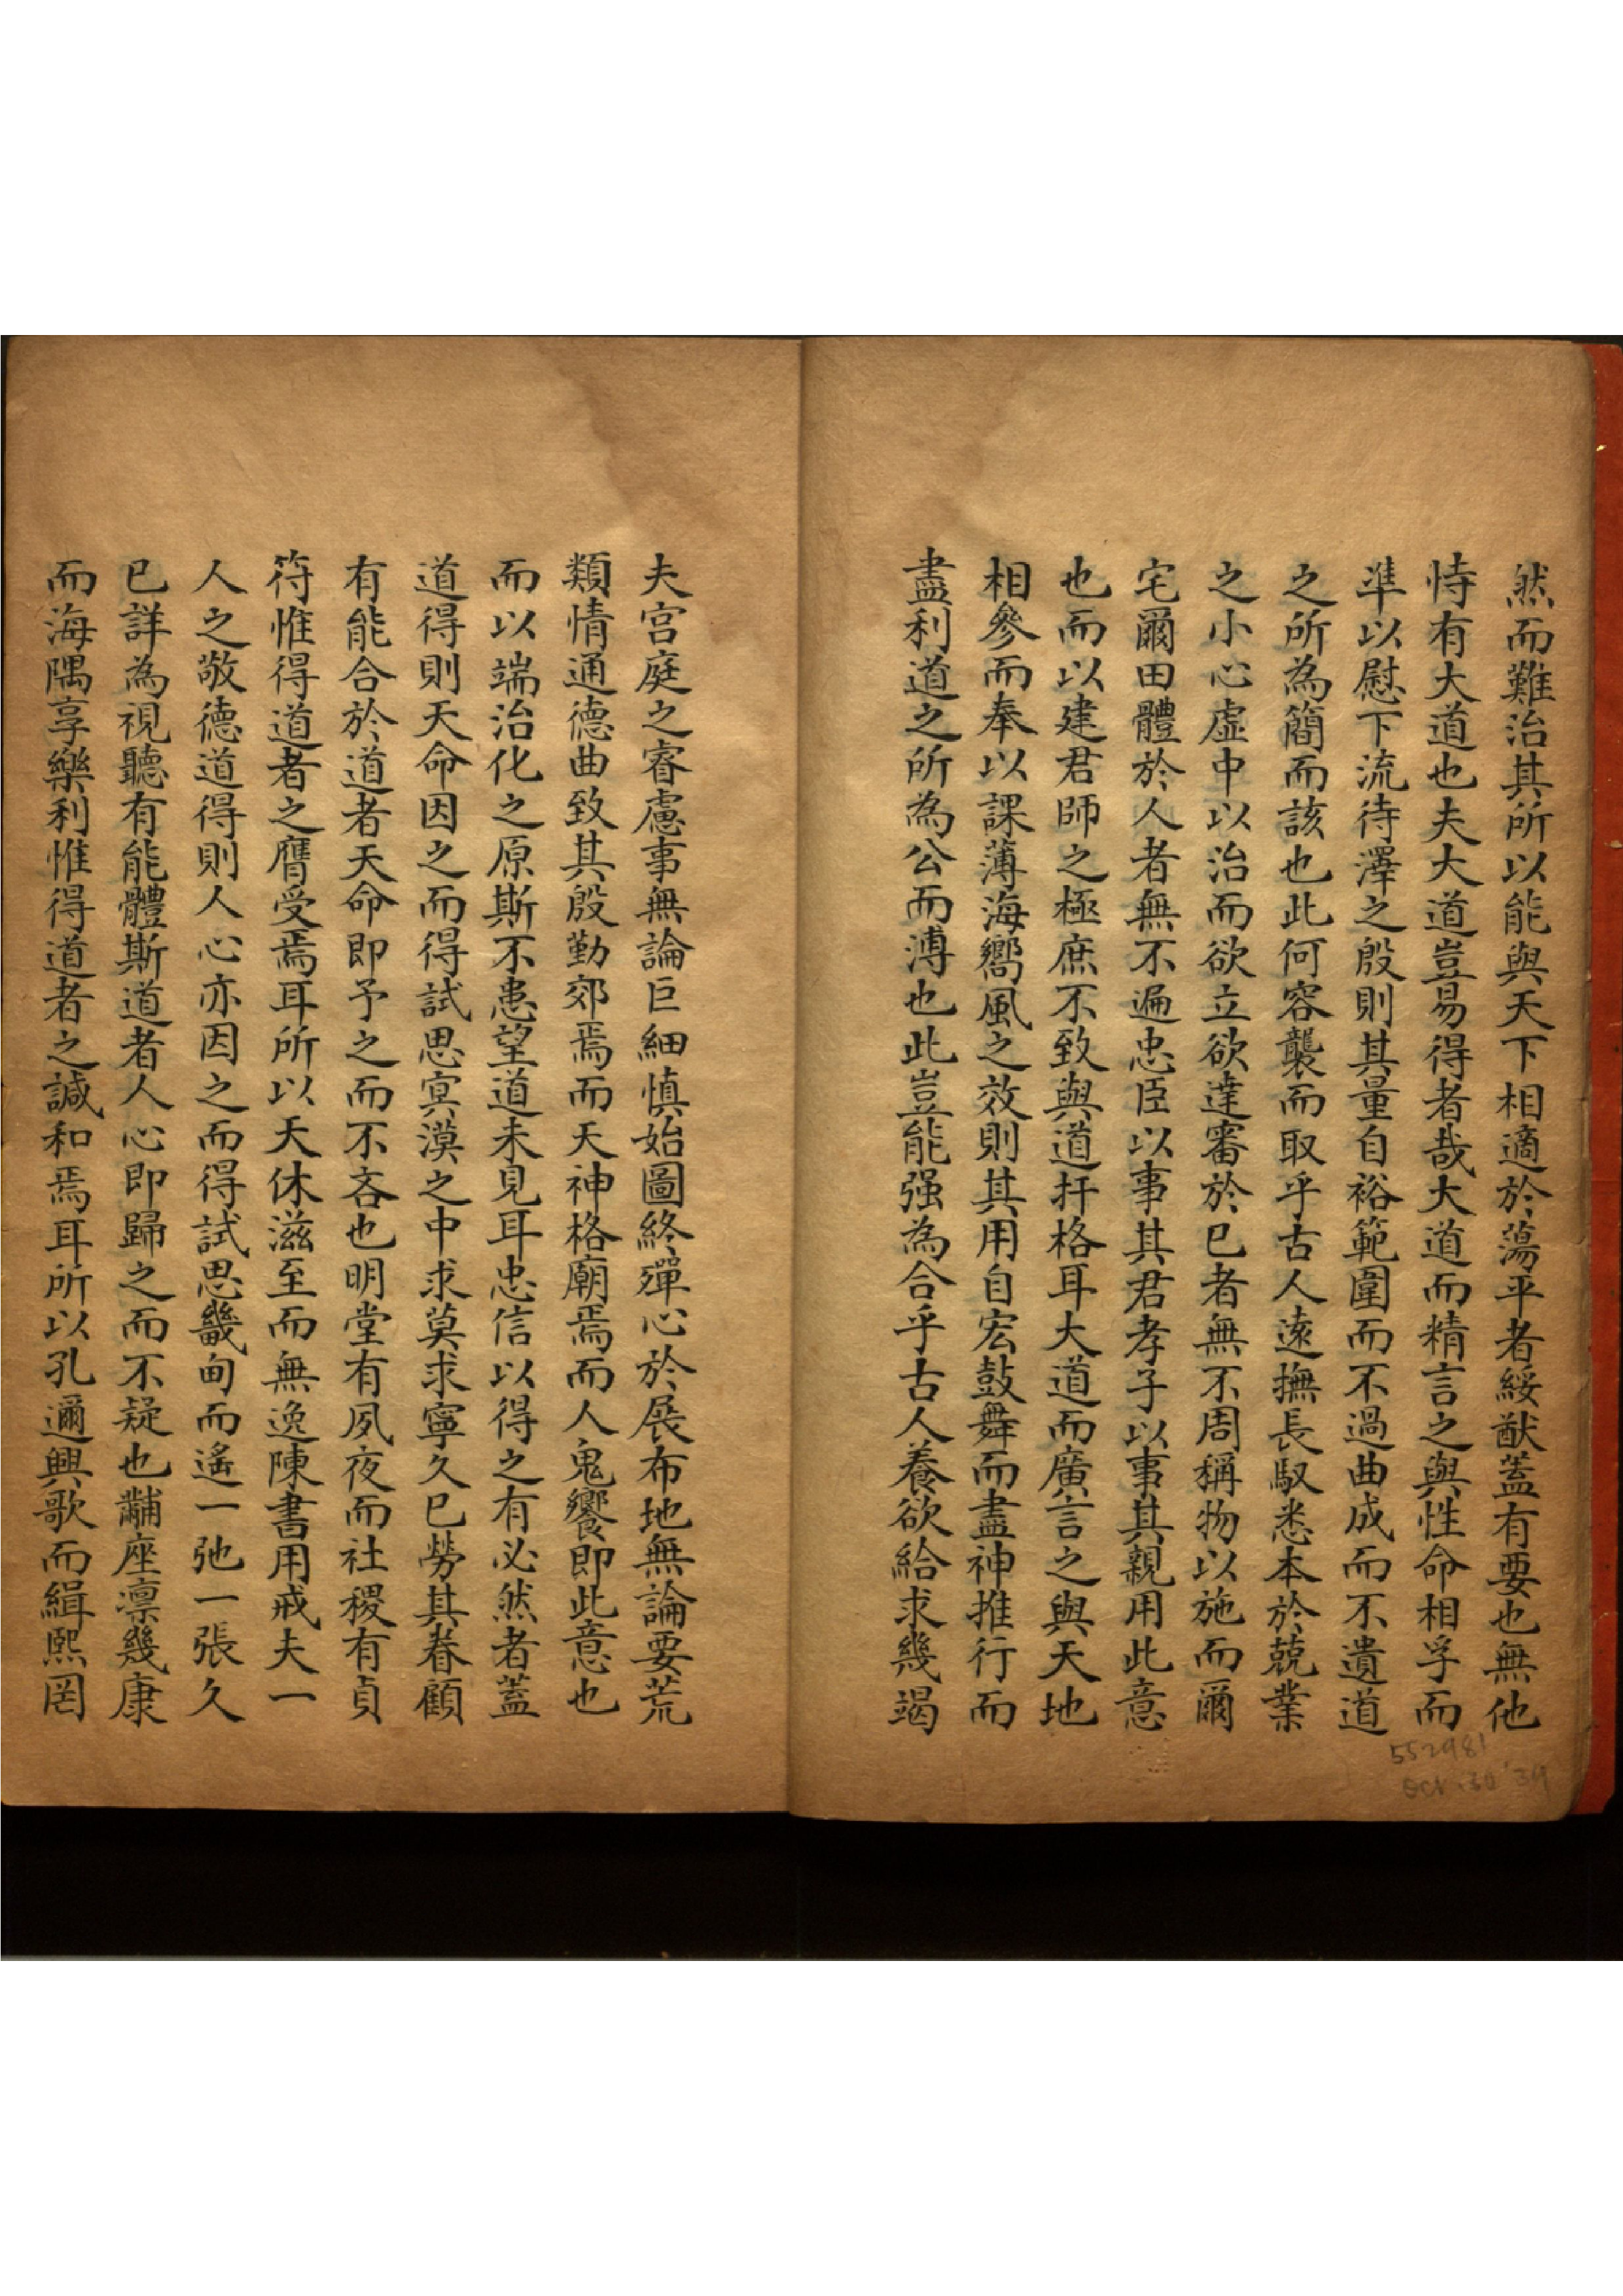 然而難治其所以能與天下相適於蕩平者綏猷蓋有要也無他
恃有大道也夫大道豈易得者哉大道而精言之與性命相孚而
準以慰下流待澤之殷則其量自裕範圍而不過曲成而不遺道
之所為簡而該也此何容襲而取乎古人遠撫長馭悉本於兢業
之小心虛中以治而欲立欲達審於已者無不周稱物以施而爾
宅爾田體於人者無不遍忠臣以事其君孝子以事其親用此意
也而以建君師之極庶不致與道扞格耳大道而廣言之與天地
相參而奉以課薄海嚮風之效則其用自宏鼓舞而盡神推行而
盡利道之所為公而溥也此豈能强為合乎古人養欲給求幾竭
夫宮庭之睿慮事無論巨細慎始圖終殫心於展布地無論要荒
類情通德曲致其殷勤郊焉而天神格廟焉而人鬼饗即此意也
而以端治化之原斯不患望道未見耳忠信以得之有必然者蓋
道得則天命因之而得試思冥漠之中求莫求寧久已勞其眷顧
有能合於道者天命即予之而不吝也明堂有夙夜而社稷有貞
符惟得道者之膺受焉耳所以天休滋至而無逸陳書用戒夫一
人之敬德道得則人心亦因之而得試思畿甸而遙一弛一張久
已詳為視聽有能體斯道者人心即歸之而不疑也黼座凛幾康
而海隅享樂利惟得道者之諴和焉耳所以孔邇興歌而緝熙罔
552981
Oct. 30 '39